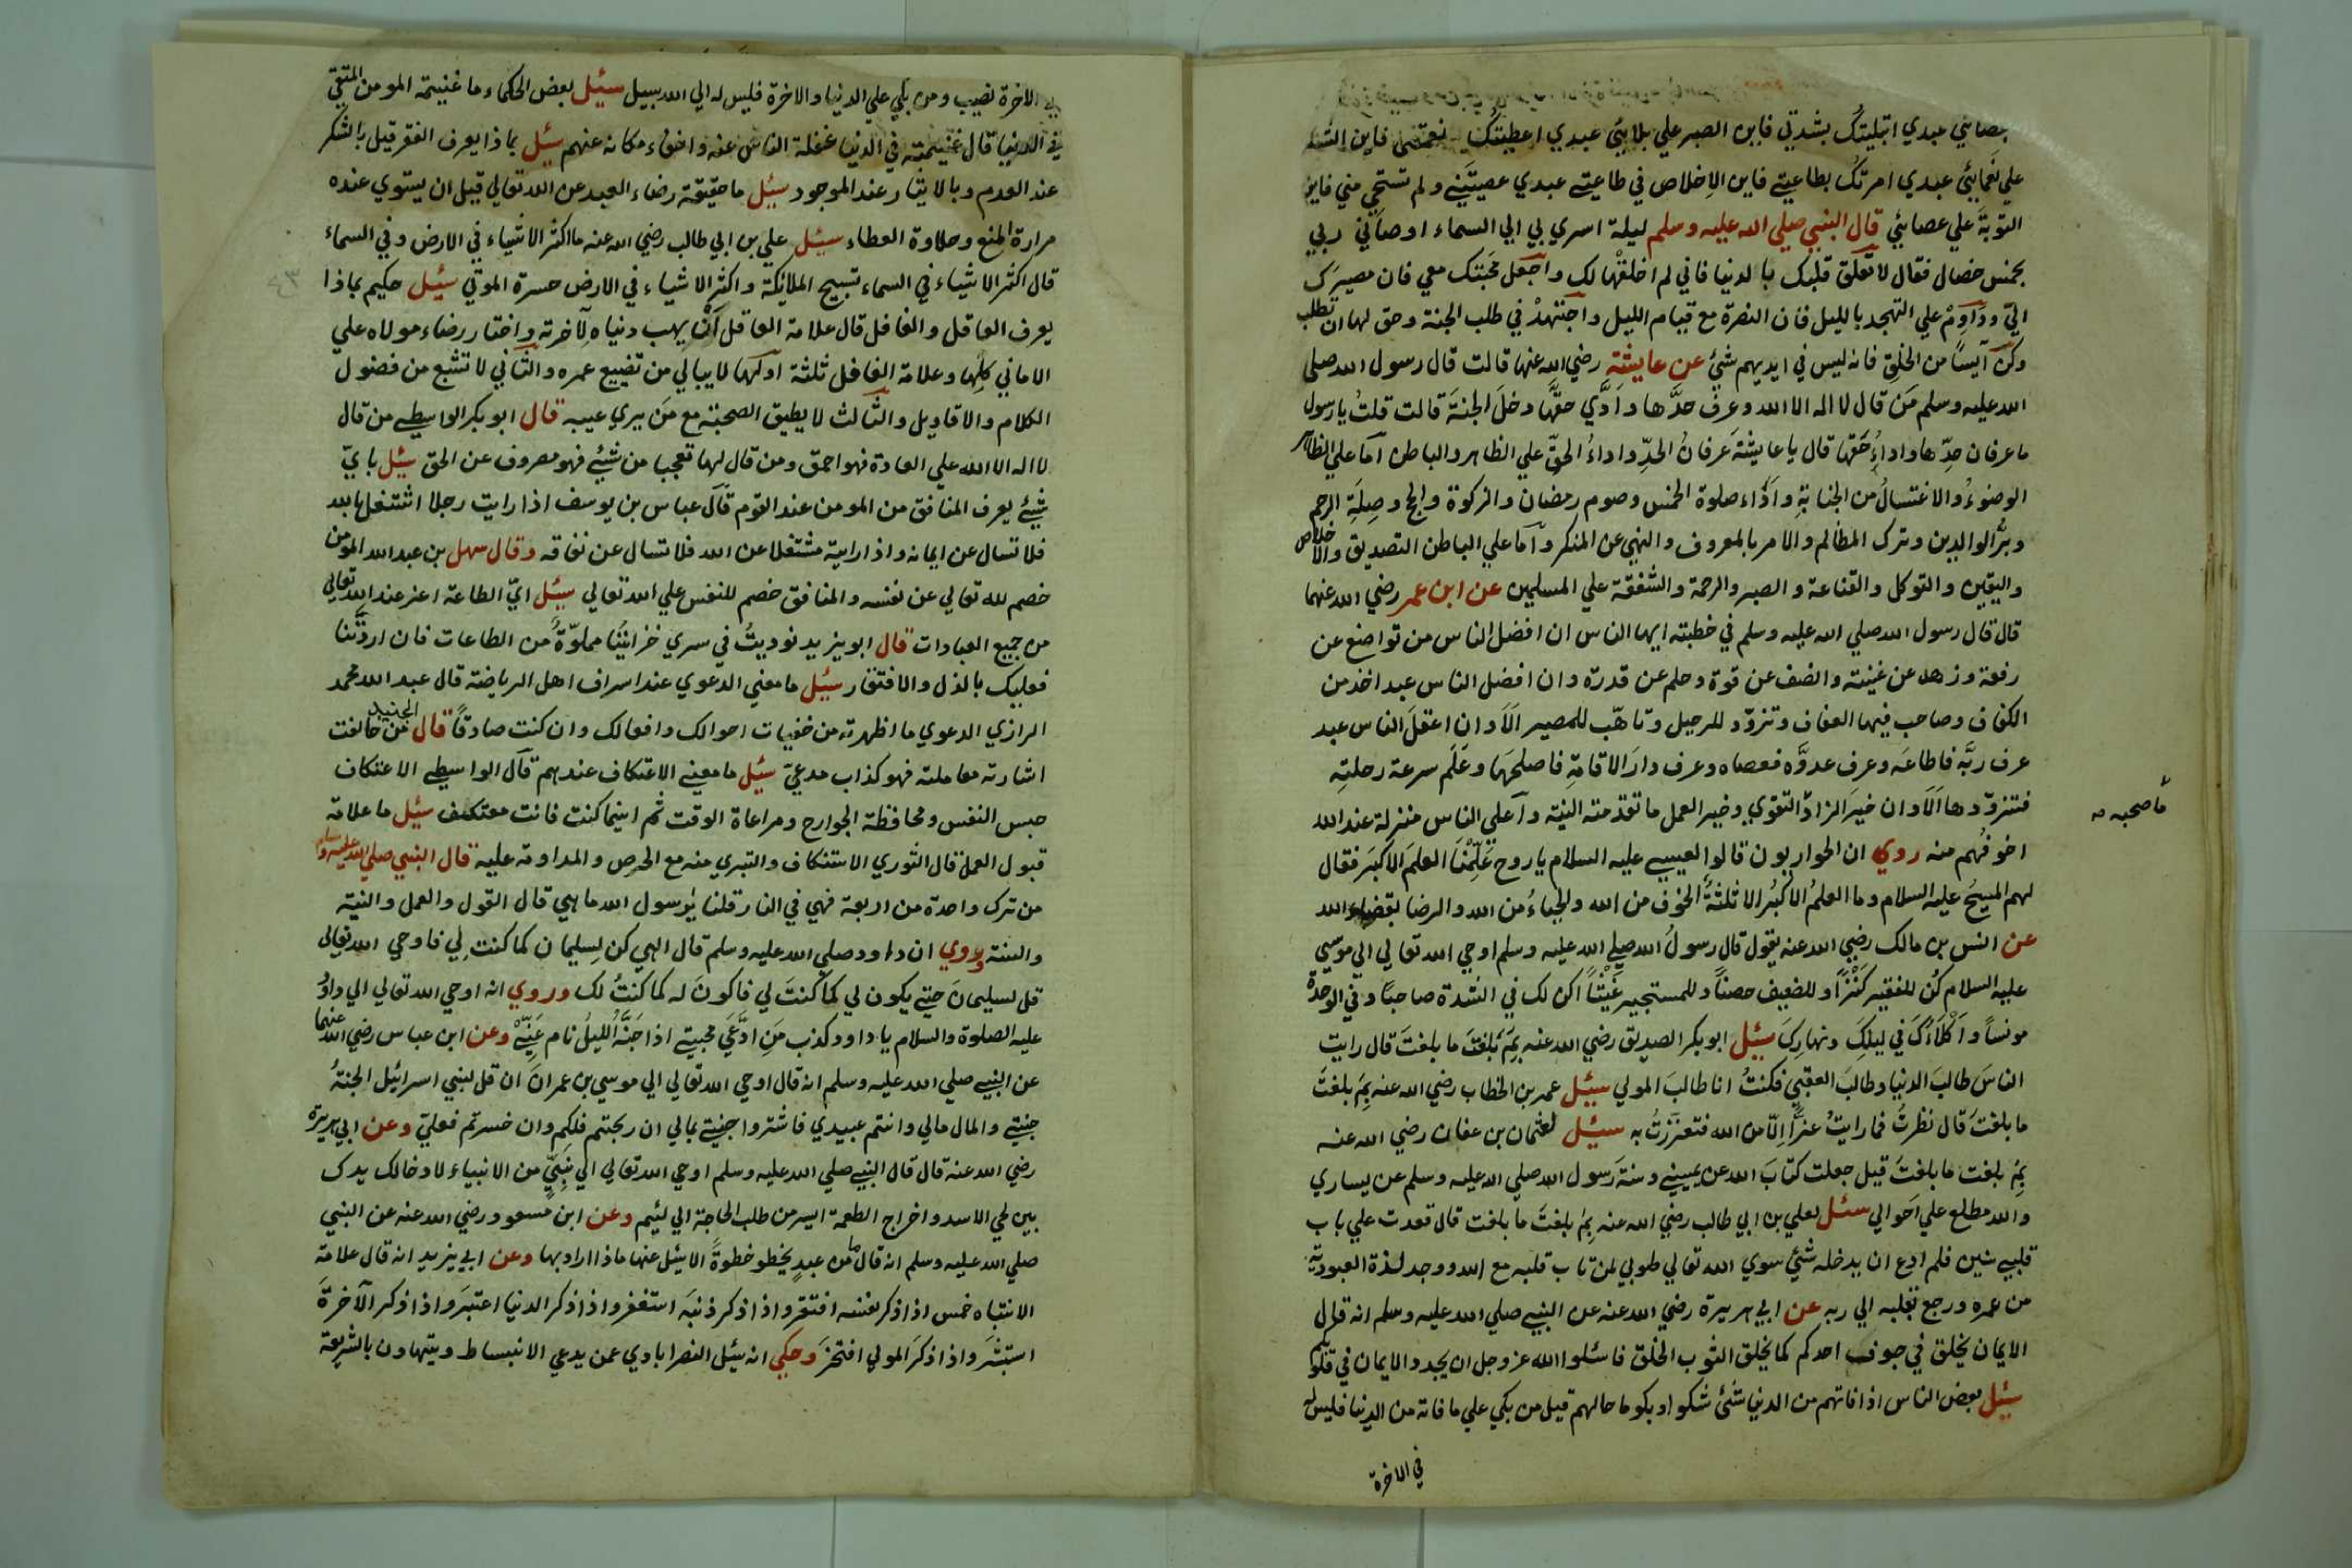 بقضائي عبدي ابتليتك بشدتي فاين الصبر علي بلائي عبدي اعطيتك نعمتي فاين الشكر
علي نعمائي عبدي امرتك بطاعتي فاين الاخلاص في طاعتي عبدي عصيتني ولم تستحي مني فاين
التوبة علي عصائي قال النبي صلي الله عليه وسلم ليلة اسري بي الي السماء اوصاني ربي
بخمس خصال فقال لا تعلق قلبك بالدنيا فاني لم اخلقها لك واجعل محبتك معي فان مصيرك
الي ودَاوِمْ علي التهجد بالليل فان النصرة مع قيام الليل واجتهدْ في طلب الجنة وحق لها ان تطلب
وكن آيسًا من الخلق فانه ليس في ايديهم شئ عن عايشة رضي الله عنها قالت قال رسول الله صلي
الله عليه وسلم مَن قال لا اله الا الله وعرف حدَّها وادَّي حقَّها دخلَ الجنةَ قالت قلتُ يا رسول
ما عرفان حدِّها واداءُ حقها قال يا عايشةَ عرفانُ الحدِّ واداءُ الحقِّ علي الظاهر والباطن اما علي الظاهر
الوضوءُ والاغتسالُ من الجنابةِ واداء صلوة الخمس وصوم رمضان والزكوة والحج وصِلَةِ الرحم
وبرُّ الوالدين وترك المظالم والامر بالمعروف والنهي عن المنكر واما علي الباطن التصديق والاخلاص
واليقين والتوكل والقناعة والصبر والرحمة والشفقة علي المسلمين عن ابن عمر رضي الله عنهما
قال قال رسول الله صلي الله عليه وسلم في خطبته ايها الناس ان افضل الناس من تواضع عن
رفعة وزهد عن غنية وانصف عن قوة وحلم عن قدرة وان افضل الناس عبد اخذ من
الكفاف وصاحب فيها العفاف وتزوّد للرحيل وتاهّب للمصير الَا وان اعقلَ الناس عبد
عرف ربَّه فاطاعَه وعرف عدوَّه فعصاه وعرف دارَ الاقامةِ فاصلحَها وعَلَم سرعة رحلتِه
فتزوّدها الَا وان خيرَ الزادِ التقوي وخير العمل ما تقدمته النية واعلي الناس منزلة عند الله
ما صحبه
اخوفُهم منه روي ان الحواريون قالوا لعيسي عليه السلام يا روح عَلِّمْنَا العلمَ الاكبَر فقال
لهم المسيحُ عليه السلام وما العلمُ الاكبُر الا ثلثةُ الخوف من الله والحياءُ من الله والرضا بقضاء الله
عن انس بن مالك رضي الله عنه يقول قال رسولُ الله صلي الله عليه وسلم اوحي الله تعالي الي موسي
عليه السلام كُن للفقير كَنْزًا وللضعيف حصنًا وللمستجير غَيْثًا اكن لك في الشدة صاحبًا وفي الوحدة
مونسًا واَكْلَاُكَ في ليلِكَ ونهارِكَ سئل ابو بكر الصديق رضي الله عنه بِمَ بَلَغتَ ما بلغتَ قال رايت
الناسَ طالبَ الدنيا وطالبَ العقبي فكنتُ انا طالبَ المولي سئل عمر بن الخطاب رضي الله عنه بِمَ بلغتَ
ما بلغتَ قال نظرتُ فما رايتُ عزًّا اِلّا من الله فتعزّزتُ به سئل لعثمان بن عفان رضي الله عنه
بِمَ بلغت ما بلغتَ قيل جعلت كتابَ الله عن يميني وسنةَ رسول الله صلي الله عليه وسلم عن يساري
والله مطلع علي احوالي سئل لعلي بن ابي طالب رضي الله عنه بِمَ بلغتَ ما بلغت قال قعدت علي باب
قلبي سنين فلم ادع ان يدخله شئ سوي الله تعالي طوبي لمن تاب قلبه مع الله ووجد لذة العبودية
من عمره ورجع بقلبه الي ربه عن ابي هريرة رضي الله عنه عن النبي صلي الله عليه وسلم انه قال
الايمان يخلق في جوف احدكم كما يخلق الثوب الخلق فاسئلوا الله عز وجل ان يجدد الايمان في قلوبكم
سئل بعض الناس اذا فاتهم من الدنيا شئ شكوا وبكوا ما حالهم قيل من بكي علي ما فاته من الدنيا فليس له
في الاخرة
في الاخرة نصيب ومن بكي علي الدنيا والاخرة فليس له الي الله سبيل سئل بعض الحكماء ما غنيمة المومن المتقي
في الدنيا قال غنيمته في الدنيا غفلة الناس عنه واخفاء مكانه عنهم سئل بماذا يعرف الفقر قيل بالشكر
عند العدم وبالايثار عند الموجود سئل ما حقيقة رضاء العبد عن الله تعالي قيل ان يستوي عنده
مرارة المنع وحلاوة العطاء سئل علي بن ابي طالب رضي الله عنه ما اكثر الاشياء في الارض وفي السماء
قال اكثر الاشياء في السماء تسبيح الملائكة واكثر الاشياء في الارض حسرة الموتي سئل حكيم بماذا
يعرف العاقل والغافل قال علامة العاقل اَنْ يهب دنياه لآخرته واختار رضاء مولاه علي
الاماني كلِّها وعلامة الغافل ثلثة اولها لا يبالي من تضييع عمره والثاني لا تشبع من فضول
الكلام والاقاويل والثالث لا يطيق الصحبة مع مَن يري عيبه قال ابو بكر الواسطي من قال
لا اله الا الله علي العادة فهو احمق ومن قال لها تعجبا من شئ فهو مصروف عن الحق سئل باي
شئ يعرف المنافق من المومن عند القوم قال عباس بن يوسف اذا رايت رجلا اشتغل بالله
فلا تسال عن ايمانه واذا رايته مشتغلا عن الله فلا تسال عن نفاقه وقال سهل بن عبد الله المومن
خصم لله تعالي عن نفسه والمنافق خصم للنفس علي الله تعالي سئل ايّ الطاعة اعز عند الله تعالي
من جميع العبادات قال ابو يزيد نوديتُ في سري خزائنُنا مملوّةُ من الطاعات فان اردتَّنا
فعليك بالذل والافتقار سئل ما معني الدعوي عند اسراف اهل الرياضة قال عبد الله محمد
الرازي الدعوي ما اظهرته من خفيات احوالك وافعالك وان كنت صادقًا قال الجنيد من خالفت
اشارته معاملته فهو كذاب مدعي سئل ما معني الاعتكاف عندهم قال الواسطي الاعتكاف
حبس النفس ومحافظة الجوارح ومراعاة الوقت ثم اينما كنت فانت معتكف سئل ما علامة
قبول العمل قال الثوري الاستنكاف والتبري منه مع الحرص والمداومة عليه قال النبي صلي الله عليه وسلم
من ترك واحدة من اربعة فهي في النار قلنا يا رسول الله ما هي قال القول والعمل والنية
والسنة وروي ان داود صلي الله عليه وسلم قال الهي كن لسليمان كما كنت لي فاوحي الله تعالي
قل لسليمانَ حتي يكون لي كما كنتَ لي فاكونَ له كما كنتُ لك وروي انه اوحي الله تعالي الي داود
عليه الصلوة والسلام يا داود كذب مَنِ ادَّعَي محبتي اذا جَنَّهُ الليلُ نام عَنِّي وعن ابن عباس رضي الله عنهما
عن النبي صلي الله عليه وسلم انه قال اوحي الله تعالي الي موسي بن عمرانَ ان قل لبني اسرائيل الجنةُ
جنتي والمال مالي وانتم عبيدي فاشتروا جنتي بمالي ان ربحتم فلكم وان خسرتم فعليّ وعن ابي هريرة
رضي الله عنه قال قال النبي صلي الله عليه وسلم اوحي الله تعالي الي نبيٍّ من الانبياء لادخالك يدك
بين لحي الاسد واخراج الطعمة ايسر من طلب الحاجة الي لئيم وعن ابن مسعود رضي الله عنه عن النبي
صلي الله عليه وسلم انه قال ما من عبدٍ يخطو خطوةً الا يسئل عنها ماذا اراد بها وعن ابي يزيد انه قال علامة
الانتباه خمس اذا ذكر نفسه افتقر واذا ذكر ذنبَه استغفر واذا ذكر الدنيا اعتبَر واذا ذكر الآخرةَ
استبشَر واذا ذكَر المولي افتخَر وحكي انه سئل النصرابادي عمن يدعي الانبساط ويتهاون بالشريعة